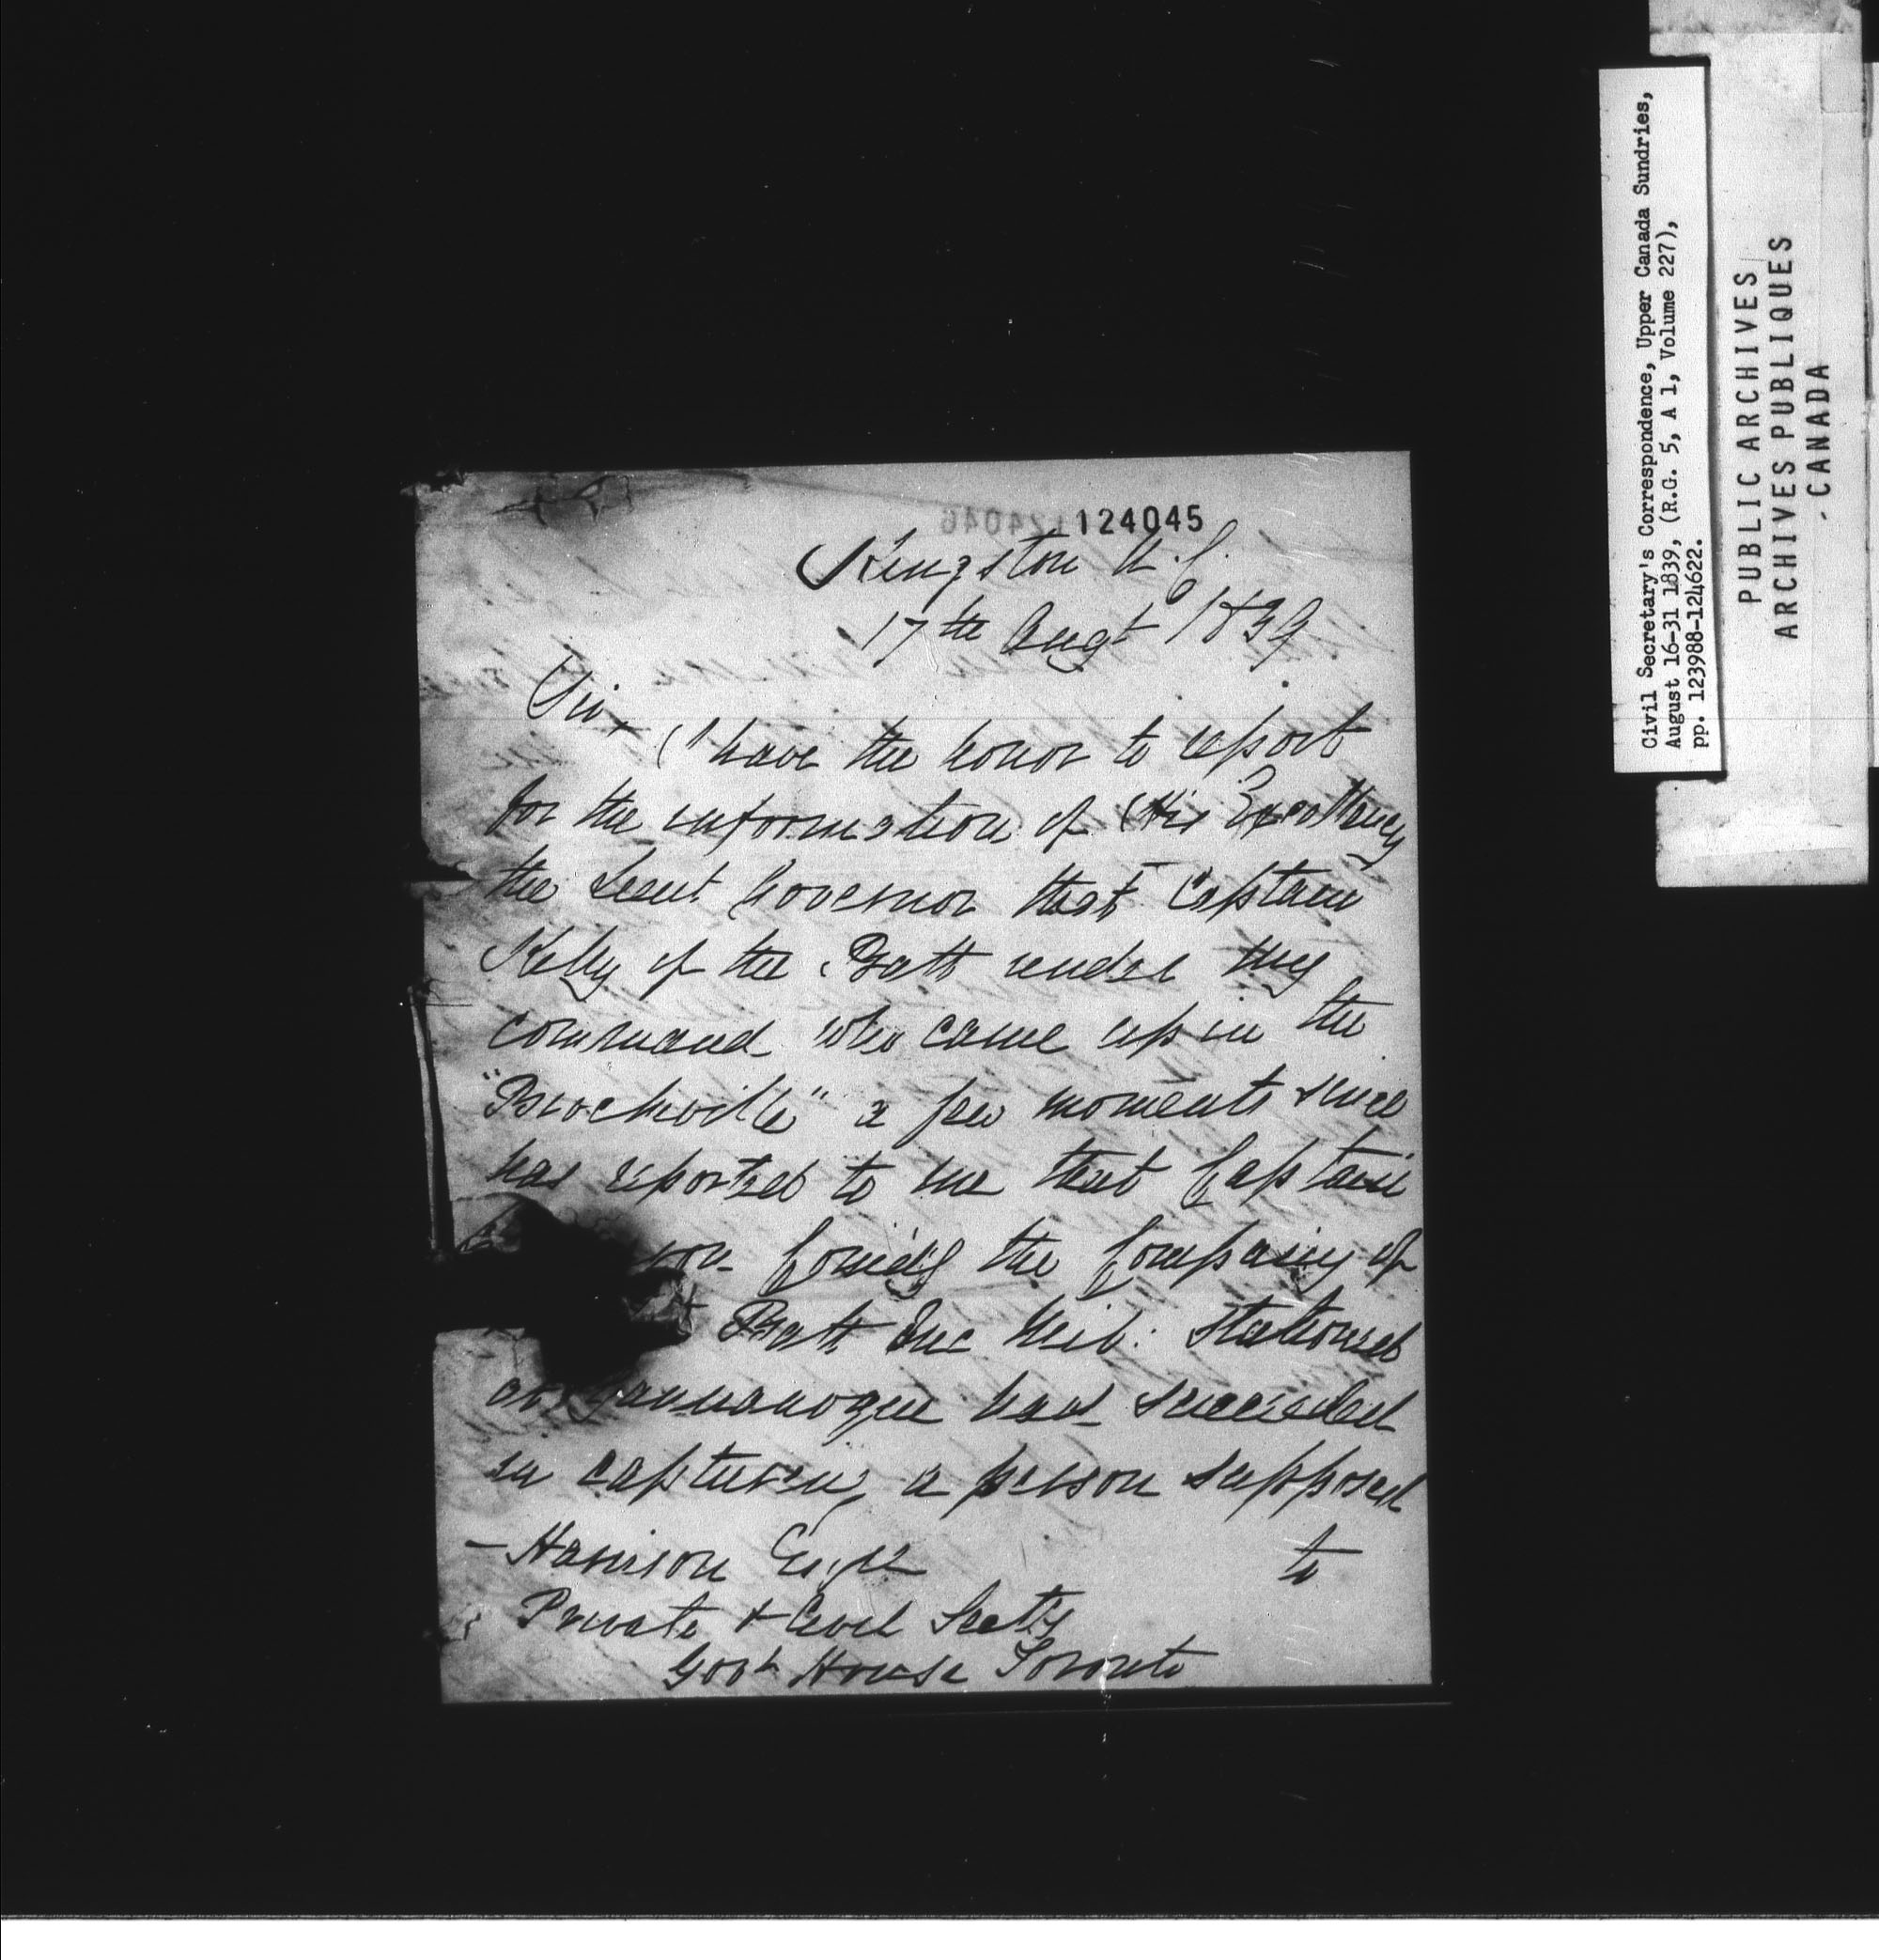 124045
Kingston U.C.
17th Augt 1839
Sir,
I have the honor to report
for the information of His Excellency
the Lieut Governor that Captain
Kelly of the Batt under my
command who came up in the
"Brockville" a few moments since
has reported to me that Captain
the Company of
Batt Inc Mil: stationed
at Gannanoque had succeeded
in capturing a person supposed
to
- Harrison Esqre
Private & Civil Secty
Govt House Toronto
Civil Secretary's Correspondence, Upper Canada Sundries,
August 16-31 1839, (R.G. 5, A 1, Volume 227),
pp. 123988-124622.
PUBLIC ARCHIVES
ARCHIVES PUBLIQUES
- CANADA